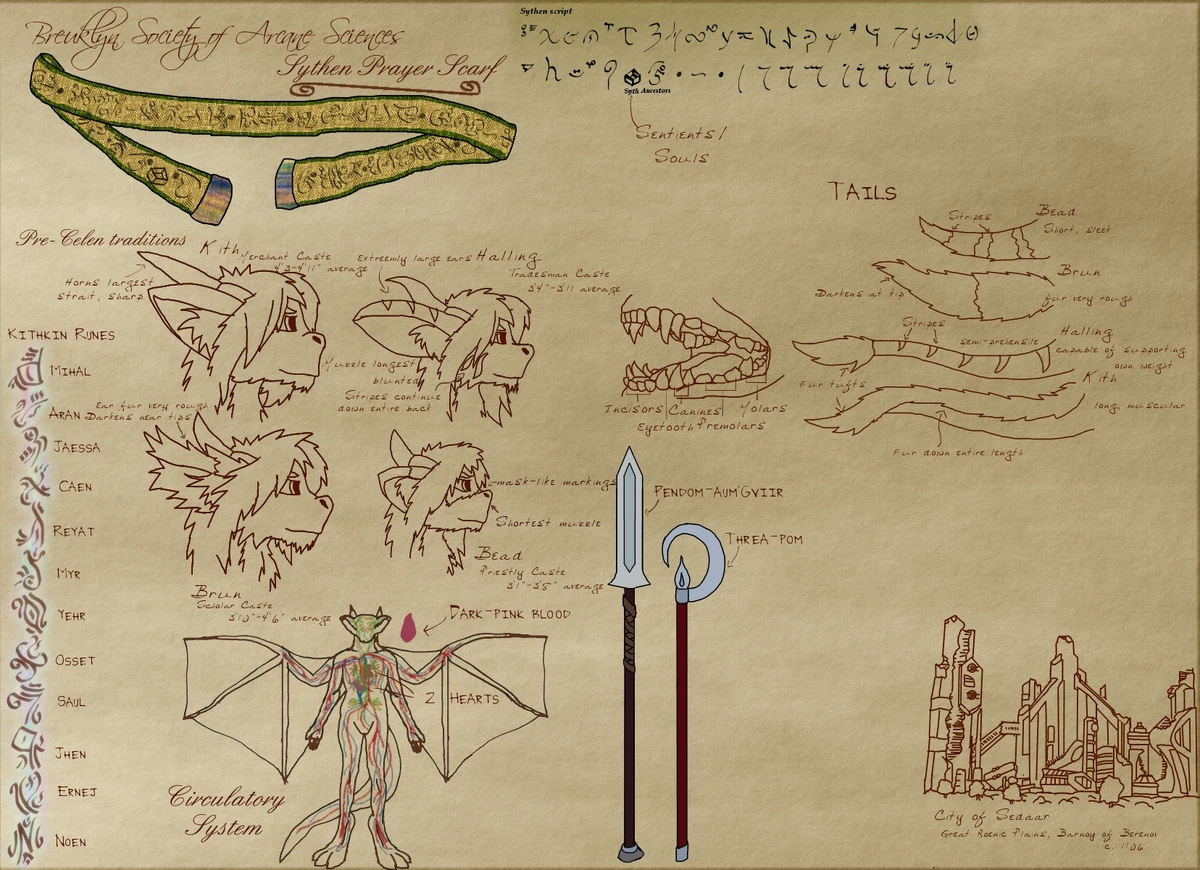 Breuklyn Society of Arcane Sciences
Sythen Prayer Scarf
Sythen script
Syth Ancestors
Sentients/
Souls
Pre-Celen traditions
Kith
Merchant Caste
4'3-4'11" average
Horns largest
strait, sharp
Extreemly large ears
Halling
Tradesman Caste
3'4"-3'11 average
Muzzle longest
blunted
Stripes continue
down entire back
Ear fur very rough
Darkens near tips
Brun
Scholar Caste
3'10"-4'6" average
mask-like markings
Shortest muzzle
Bead
Priestly Caste
3'1"-3'8" average
KITHKIN RUNES
MIHAL
ARAN
JAESSA
CAEN
REYAT
MYR
YEHR
OSSET
SAUL
JHEN
ERNEJ
NOEN
Incisors
Canines
Molars
Eyetooth
Premolars
TAILS
Stripes
Bead
Short, sleek
Brun
Darkens at tip
fur very rough
Stripes
Halling
semi-prehensile
capable of supporting
own weight
Fur tufts
Kith
long, muscular
Fur down entire length
PENDOM-AUM'GVIIR
THREA-POM
DARK-PINK BLOOD
2 HEARTS
Circulatory
System
City of Sedaar
Great Roenic Plains, Barnoy of Berenor
c. 1106